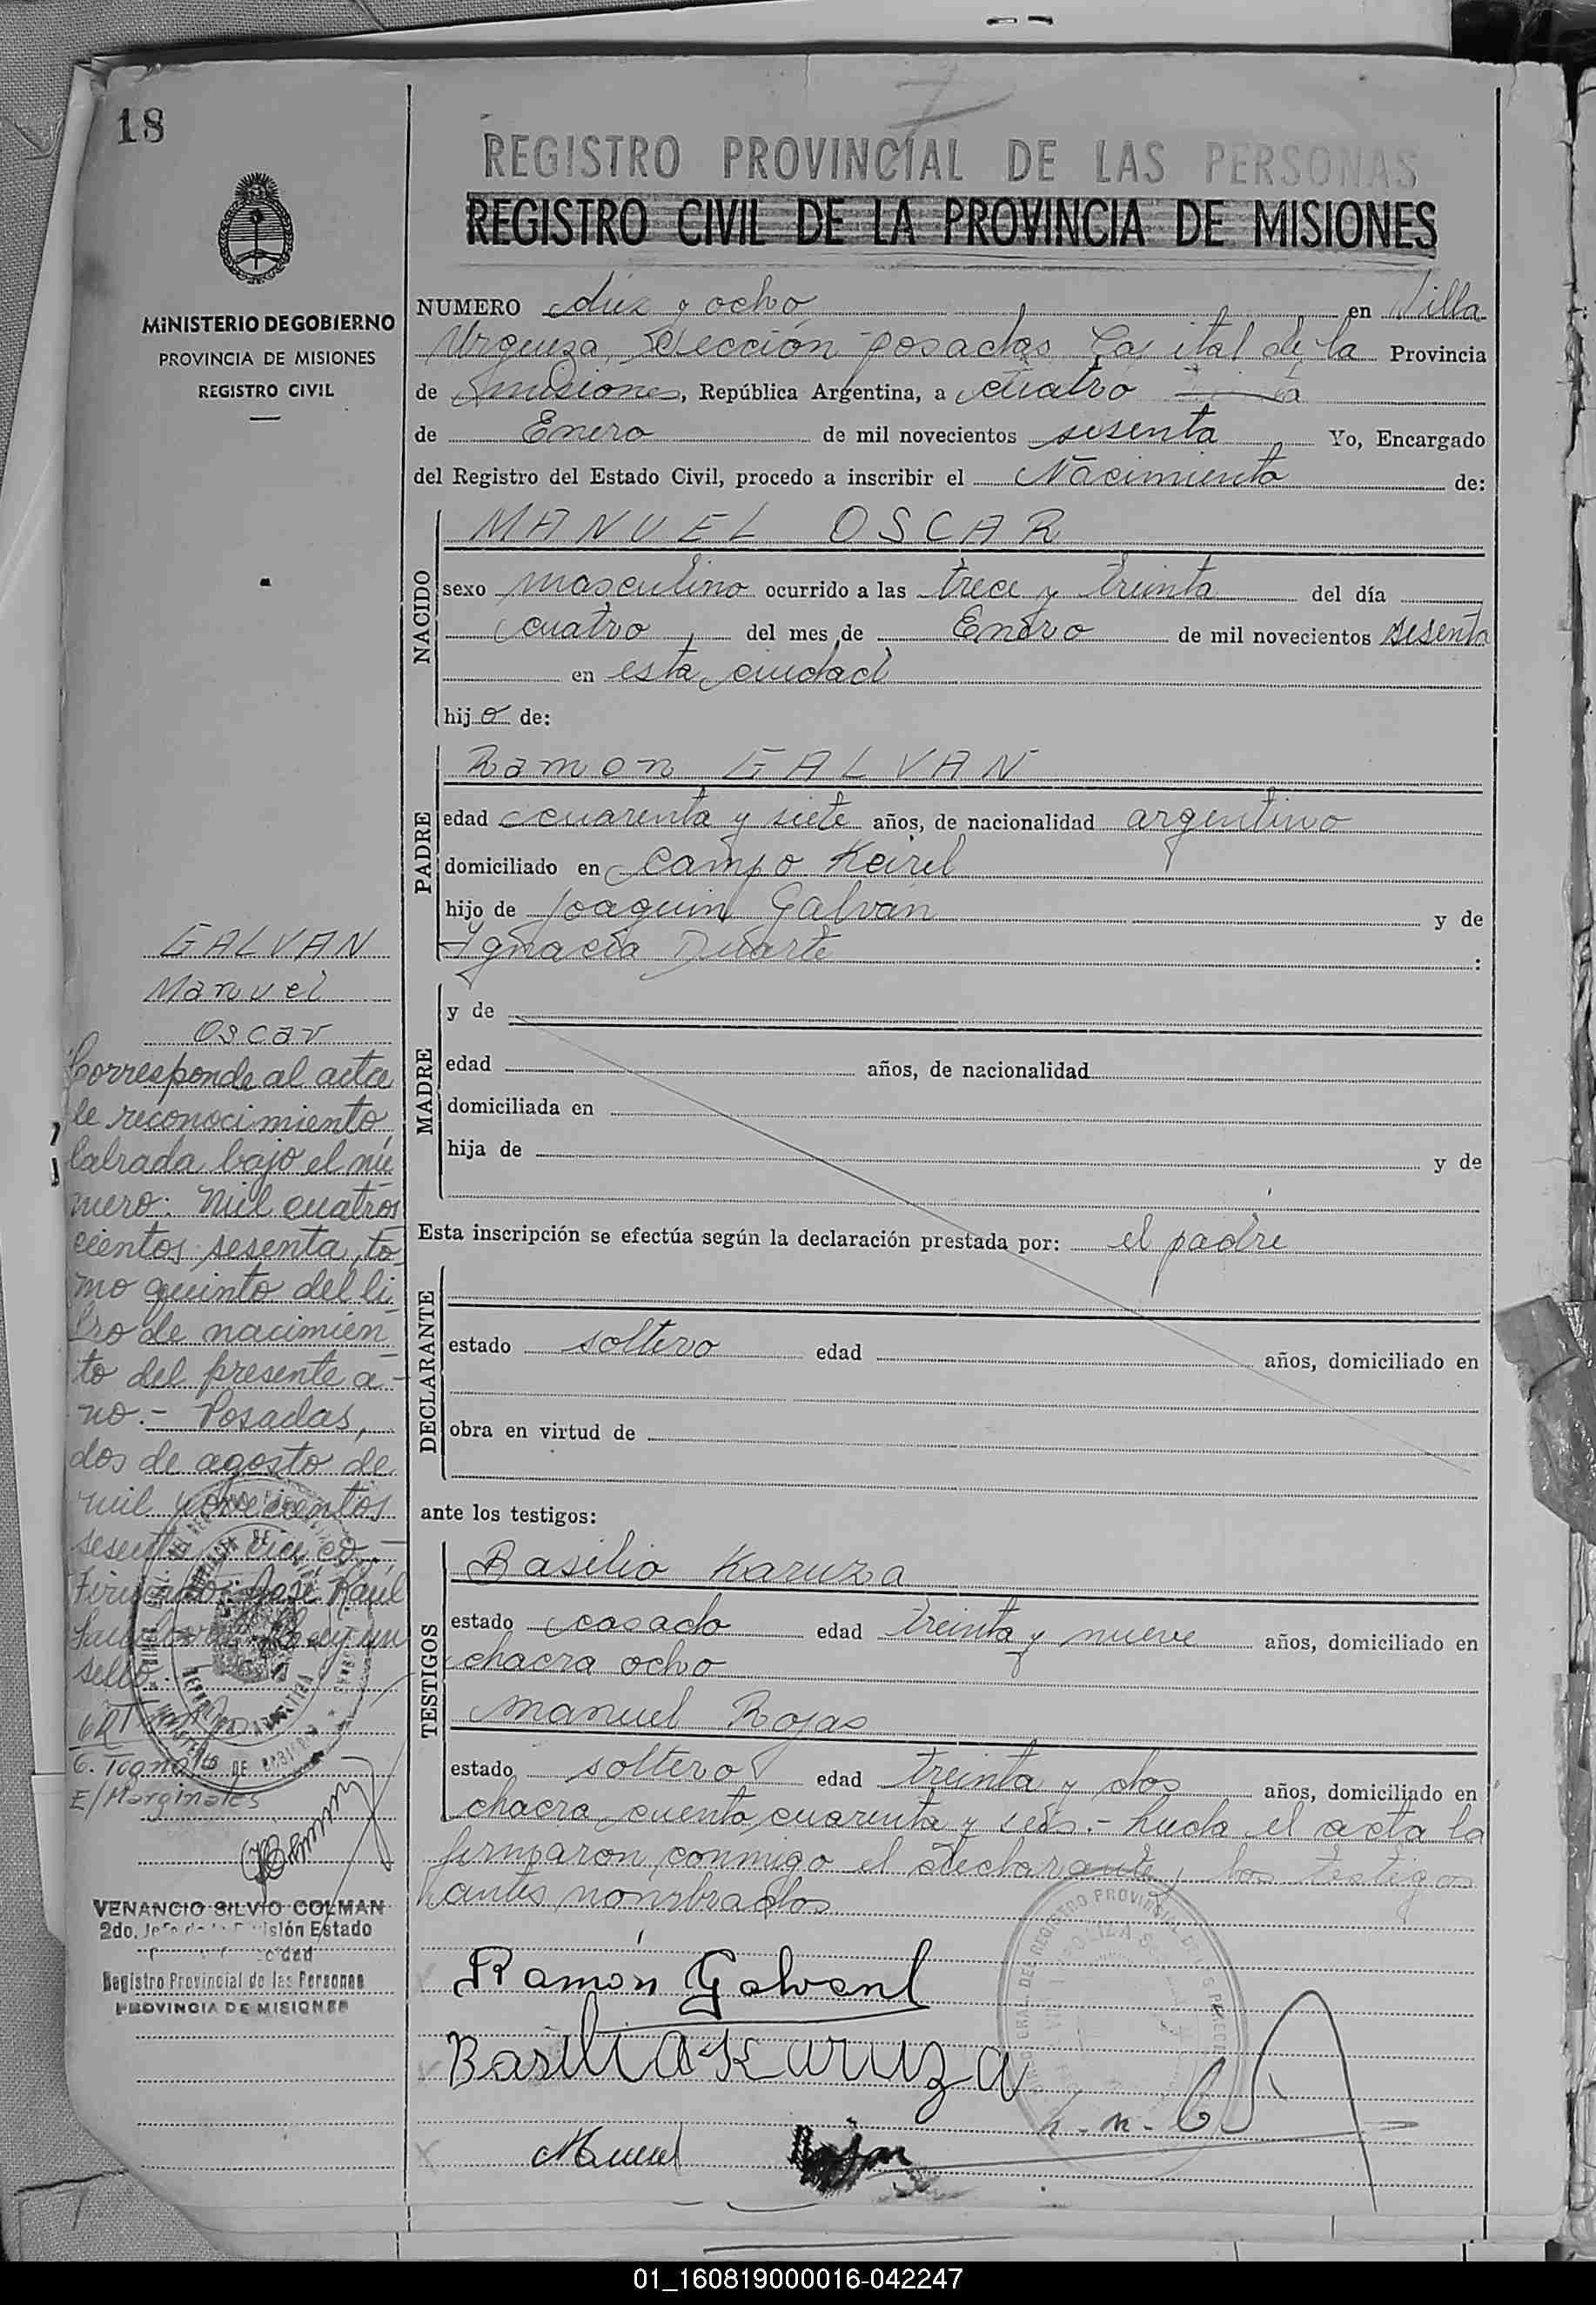 18
MINISTERIO DE GOBIERNO
PROVINCIA DE MISIONES
REGISTRO CIVIL
REGISTRO PROVINCIAL DE LAS PERSONAS
REGISTRO CIVIL DE LA PROVINCIA DE MISIONES
NUMERO diez y ocho en Villa
Urquiza, Sección Posadas Capital de la Provincia
de Misiones, República Argentina, a cuatro
de Enero de mil novecientos sesenta Yo, Encargado
del Registro del Estado Civil, procedo a inscribir el Nacimiento de:
NACIDO
MANUEL OSCAR
sexo masculino ocurrido a las trece y treinta del día
cuatro del mes de Enero de mil novecientos sesenta
en esta ciudad
hijo de:
PADRE
Ramon GALVAN
edad cuarenta y siete años, de nacionalidad argentino
domiciliado en Campo Keirel
hijo de Joaquin Galvan y de
Ignacia Duarte :
MADRE
y de
edad años, de nacionalidad
domiciliada en
hija de y de
Esta inscripción se efectúa según la declaración prestada por: el padre
DECLARANTE
estado soltero edad años, domiciliado en
obra en virtud de
ante los testigos:
TESTIGOS
Basilio Karuza
estado casado edad treinta y nueve años, domiciliado en
chacra ocho
Manuel Rojas
estado soltero edad treinta y dos años, domiciliado en
chacra ciento cuarenta y seis.- Leida el acta la
firmaron conmigo el declarante, los testigos
antes nombrados
Ramón Galvan
Basilia Karuza
Manuel Rojas
GALVAN
Manuel
Oscar
Corresponde al acta
de reconocimiento,
labrada bajo el nú
mero: mil cuatros
cientos sesenta, to
mo quinto del li
bro de nacimien
to del presente a-
ño.- Posadas,
dos de agosto de
mil novecientos
sesenta y cinco.-
Firmado: José Raúl
Hay un
sello.-
E/Marginales
VENANCIO SILVIO COLMAN
2do. Jefe de la División Estado
Registro Provincial de las Personas
PROVINCIA DE MISIONES
01_160819000016-042247